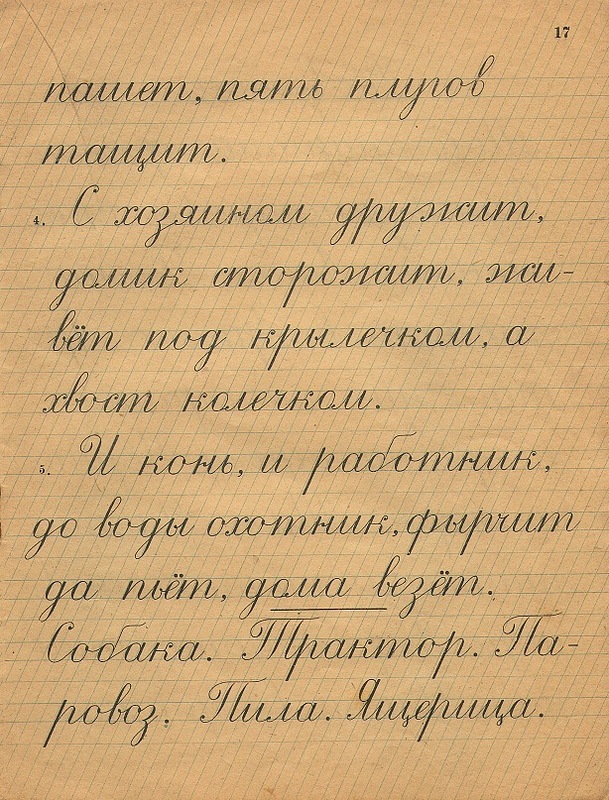 17
пашет, пять плугов
тащит.
4. С хозяином дружит,
домик сторожит, жи-
вёт под крылечком, а
хвост колечком.
5. И конь, и работник,
до воды охотник, фырчит
да пьёт, дома везёт.
Собака. Трактор. Па-
ровоз. Пила. Ящерица.